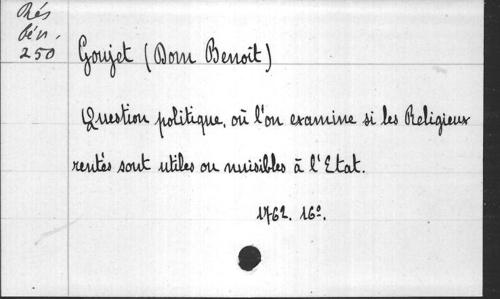 Rés
bén.
250
Goujet (Dom Benoît)
Question politique, où l'on examine si les Religieux
rentés sont utiles ou nuisibles à l'Etat.
1762. 16º.